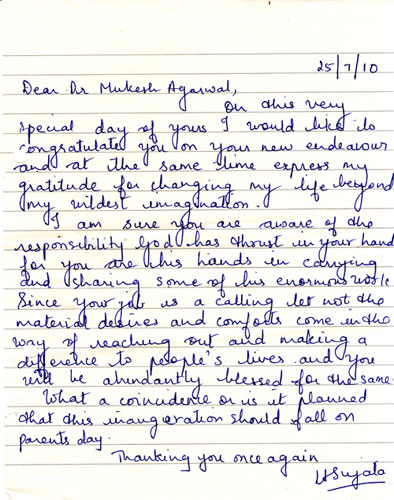 25/7/10
Dear Dr Mukesh Agarwal,
On this very
special day of yours I would like to
congratulate you on your new endeavour
and at the same time express my
gratitude for changing my life beyond
my wildest imagination.
I am sure you are aware of the
responsibility God has thrust in your hand
for you are his hands in carrying
and sharing some of his enormous work.
Since your job is a calling let not the
material desires and comforts come in the
way of reaching out and making a
difference to people's lives and you
will be abundantly blessed for the same.
What a coincidence or is it planned
that this inaugration should fall on
parents day.
Thanking you once again
HSujata